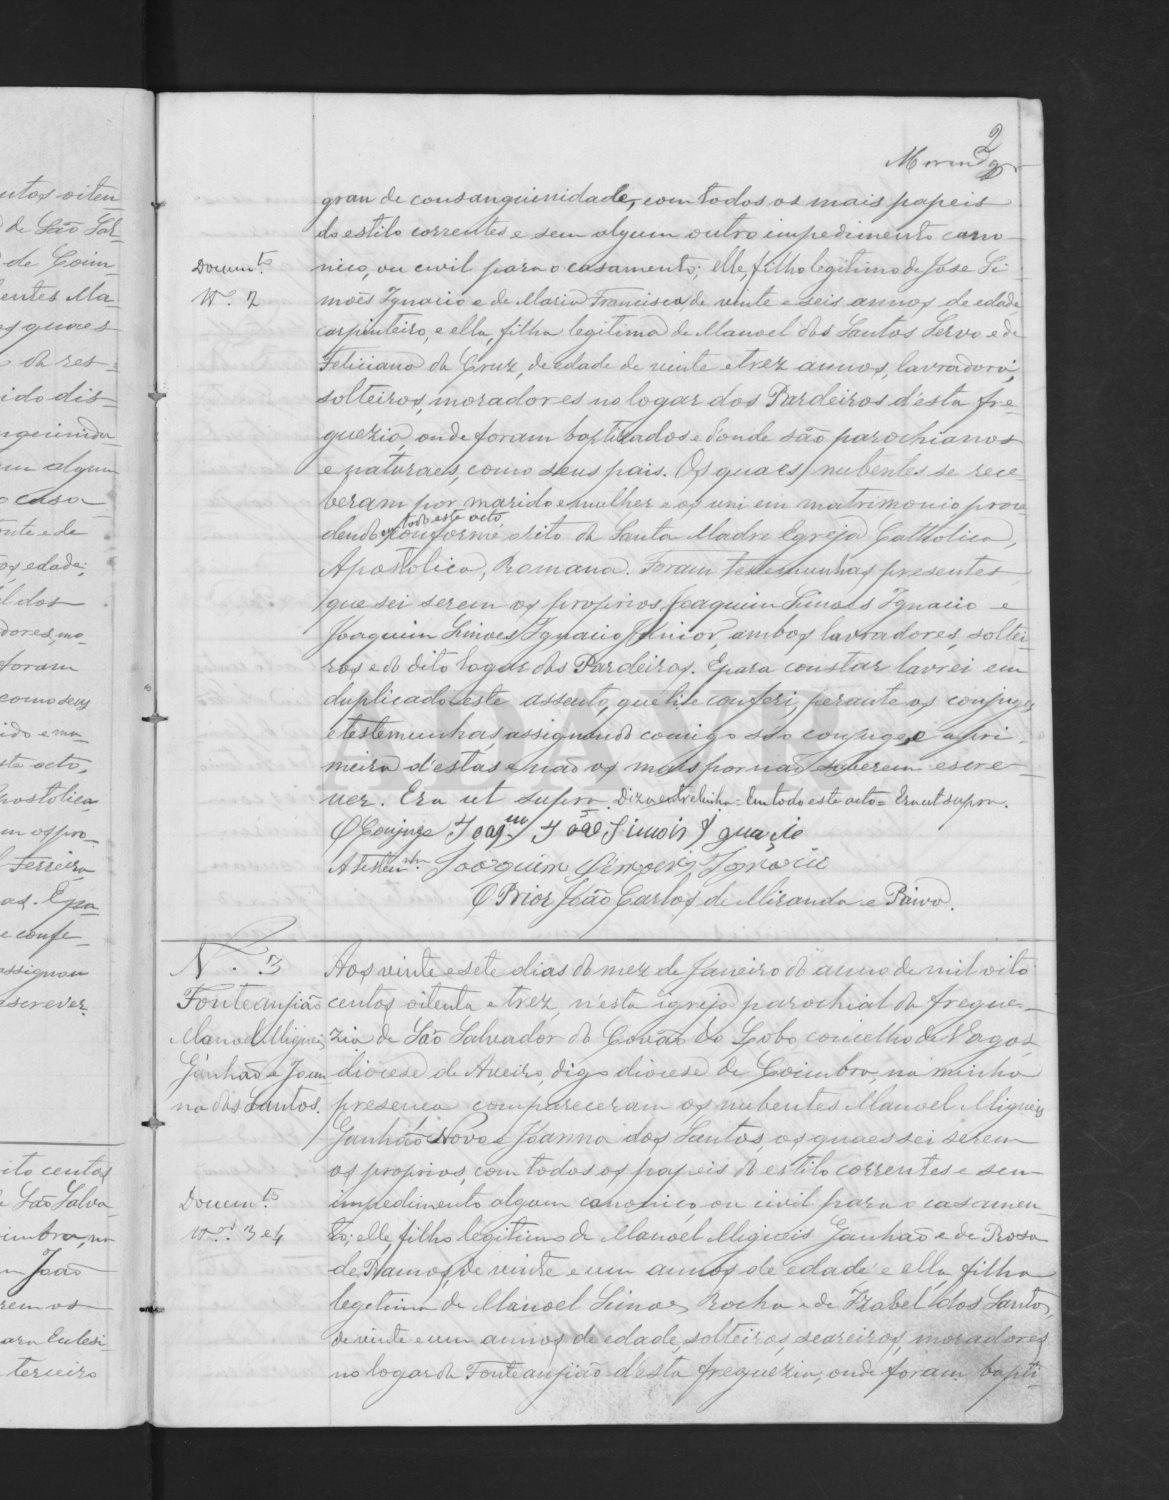 2
grau de consanguinidade, com todos os mais papeis
do estilo correntes e sem algum outro impedimento cano-
nico, ou civil para o casamento; elle, filho legitimo de Jose Si-
mões Ignacio e de Maria Francisca, de vinte e seis annos de edade,
carpinteiro, e ella, filha legitima de Manoel dos Santos Servo e de
Feliciana da Cruz, de edade de vinte e trez annos, lavradora,
solteiros, moradores no logar dos Pardeiros d'esta fre-
guezia, onde foram baptizados e d'onde são parochianos
e naturaes, como seus pais. Os quaes nubentes se rece-
beram por marido e mulher e os uni em matrimonio proce-
em todo este acto
dendo conforme o rito da Santa Madre Egreja Catholica,
Apostolica, Romana. Foram testemunhas presentes,
que sei serem os proprios Joaquim Simões Ignacio e
Joaquim Simoes Ignacio Junior, ambos lavradores, soltei-
ros e do dito logar dos Pardeiros. E para constar lavrei em
duplicado este assento, que li e conferi, perante os conjuges
e testemunhas assignando comigo so o conjuge, e a pri-
meira d'estas e não os mais por não saberem escre-
ver. Era ut supra. Diz a entrelinha = Em todo este acto = Era ut supra.
O Conjuge Joaqm José Simois Ignacio
A testemnha Joaquim Simões Ignacio
O Prior João Carlos de Miranda e Paiva.
Documto
Nº. 2
N. 3
Fonte anjião
Manoel Migueis
Ganhão e Joan-
na dos Santos.
Documtos
Nos. 3 e 4
Aos vinte e sete dias do mez de Janeiro do anno de mil oito
centos oitenta e trez, n'esta igreja parochial da fregue-
zia de São Salvador do Covão do Lobo, concelho de Vagos,
diocese de Aveiro, digo diocese de Coimbra, na minha
presença compareceram os nubentes Manoel Migueis
Ganhão Novo e Joanna dos Santos, os quaes sei serem
os proprios, com todos os papeis do estilo correntes e sem
impedimento algum canonico, ou civil para o casamen-
to; elle, filho legitimo de Manoel Migueis Ganhão e de Rosa
de Ramos, de vinte e um annos de edade e ella, filha
legitima de Manoel Simoes Rocha e de Izabel dos Santos,
de vinte e um annos de edade, solteiros, seareiros, moradores
no logar da Fonte anjião d'esta freguezia, onde foram bapti-